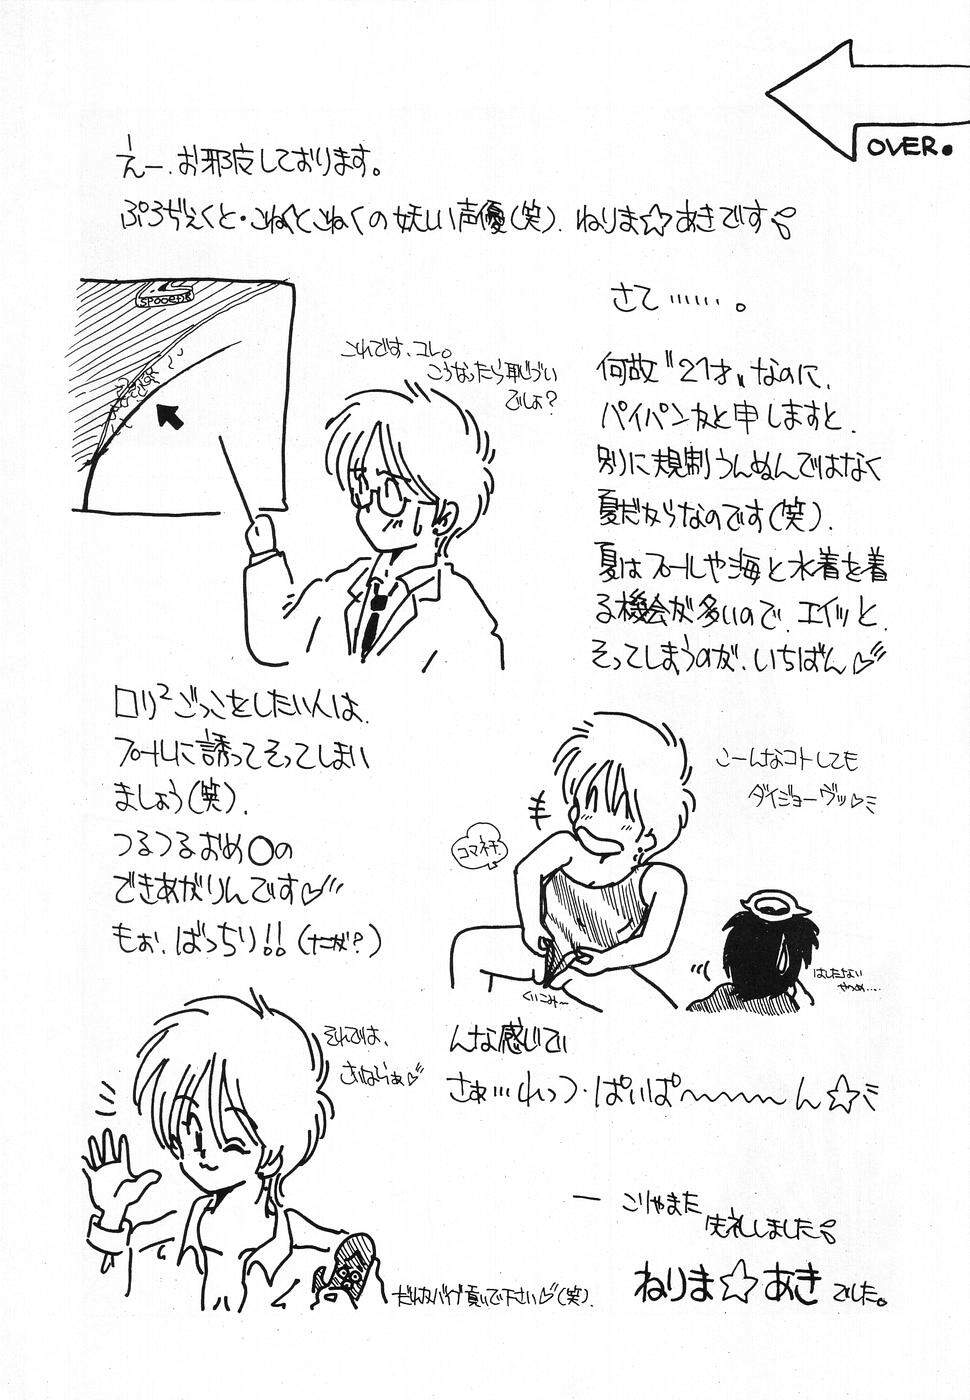 OVER.
えー、お邪魔しております。
ぷろぢぇくと・こねくとこねくの妖しい声優(笑)、ねりま☆あきです♪
さて……。
SPOOEDR
これでは、コレ。
こうなったら恥しい
でしょ?
何故〝21才〟なのに、
パイパンかと申しますと、
別に規制うんぬんではなく
夏だからなのです(笑)。
夏はプールや海と水着を着
る機会が多いので、エイッと、
そってしまうのが、いちばん♡
ロリ²ごっこをしたい人は、
プールに誘ってそってしまい
ましょう(笑)。
つるつるおめ〇の
できあがりんです♡
もぉ、ばっちり!!(なにが?)
こーんなコトしても
ダイジョーヴッ♡ミ
コマネチ
くいこみ〜
はしたない
やつめ……
んな感じでい
さぁ…れっつ・ぱいぱ〜〜〜〜ん☆ミ
それでは、
さいならぁ♡
だれかバイブ買いで下さい♡(笑)
― こりゃまた
失礼しました♪
ねりま☆あきでした。